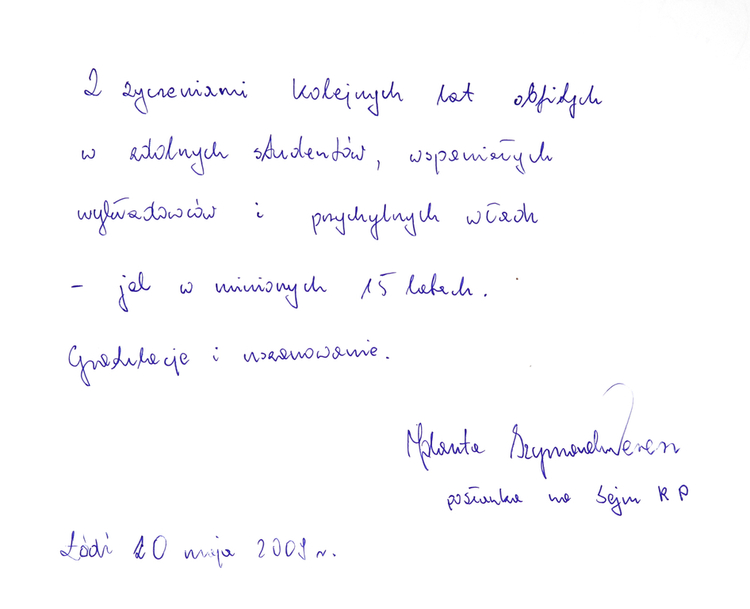 Z życzeniami kolejnych lat obfitych
w zdolnych studentów, wspaniałych
wykładowców i przychylnych władz
- jak w minionych 15 latach.
Gratulacje i uszanowanie.
Jolanta Szymanek-Deresz
posłanka na Sejm RP
Łódź 20 maja 2009 r.